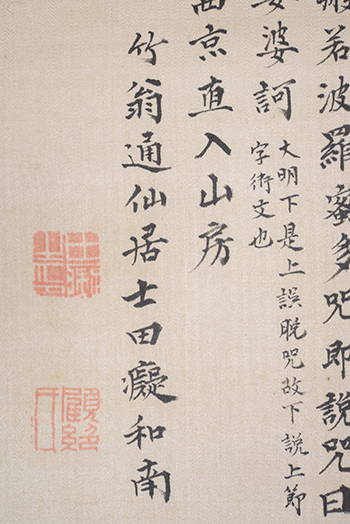 般若波羅蜜多咒即說咒曰
婆訶
大明下是上誤脫咒故下說上節
字衍文也
西京直入山房
竹翁通仙居士田癡和南